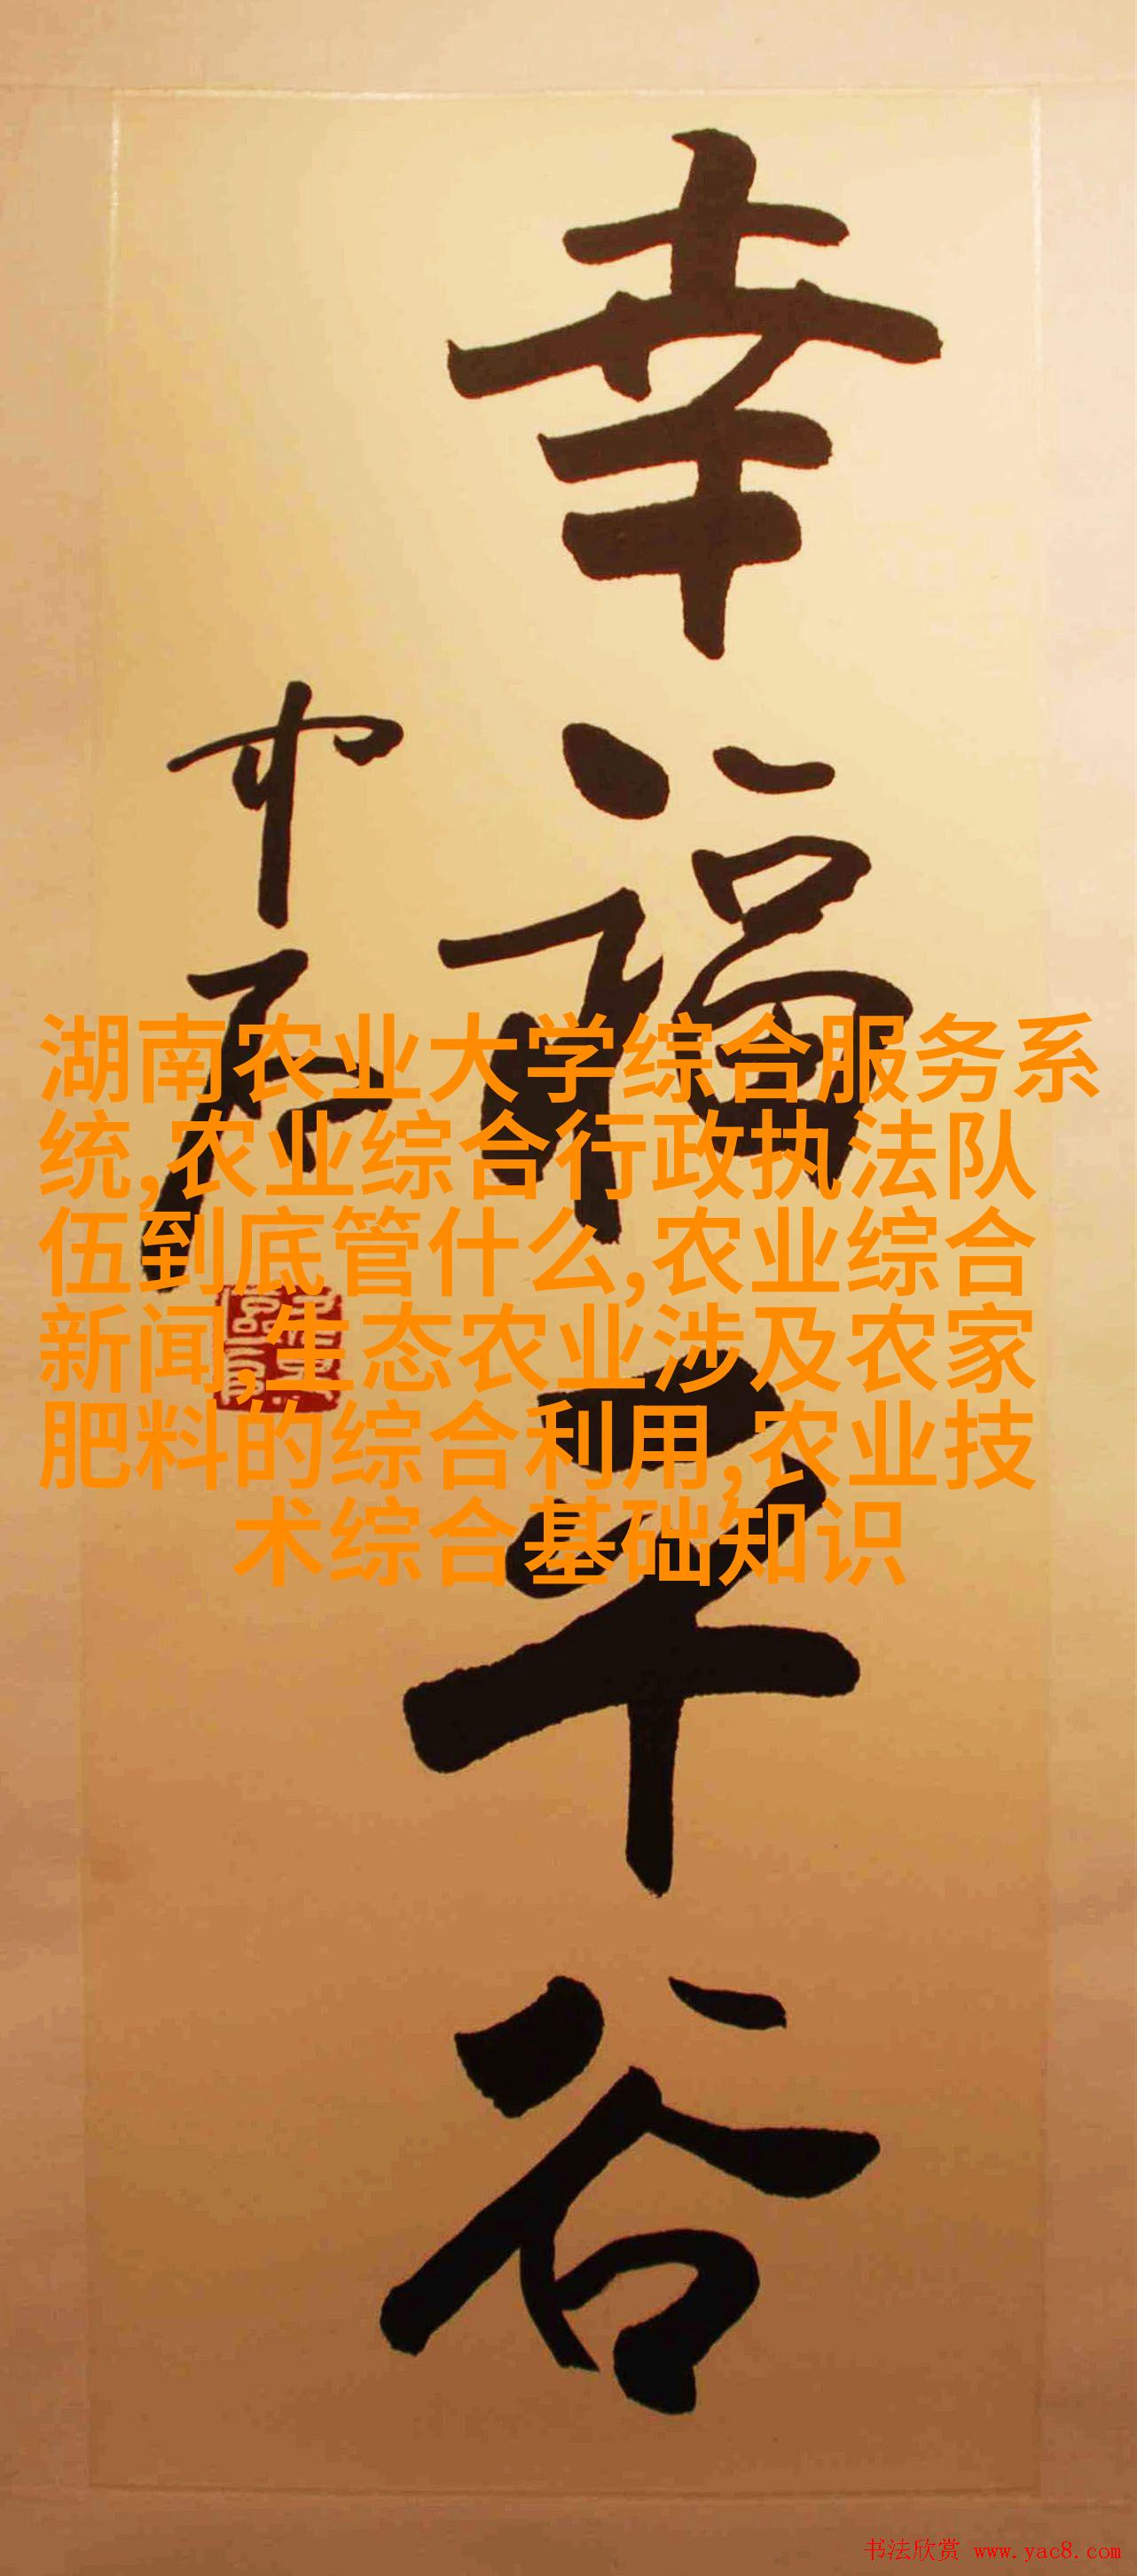 幸福平谷
湖南农业大学综合服务系
统,农业综合行政执法队
伍到底管什么,农业综合
新闻,生态农业涉及农家
肥料的综合利用,农业技
术综合基础知识
书法欣赏 www.yac8.com